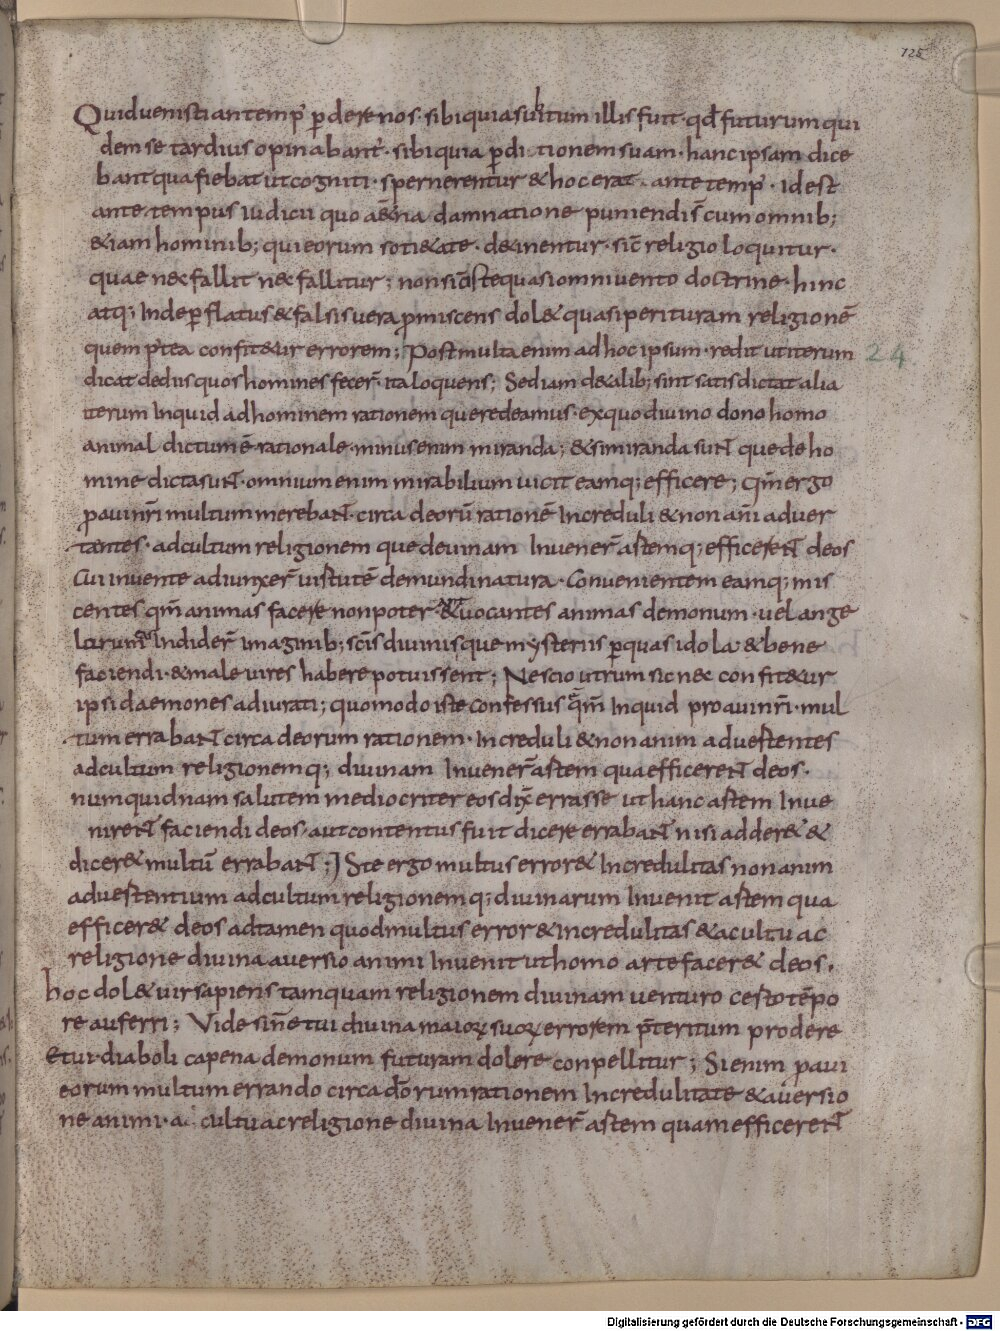 125
Quid uenisti an temp' ꝑdere nos · sibi quia subitum illis fuit · qđ futurum qui
dem se tardius opinabant' · sibi quia ꝑditionem suam · hanc ipsam dice
bant qua fiebat ut cogniti · spernerentur & hoc erat · ante temp' · Id est
ante tempus iudicii quo a&̄na damnatione puniendi s̄ cum omnib;
&iam hominib; qui eorum soti&ate · d&inentur · sic̄ religio loquitur ·
quae nec fallit nec fallitur; non sic̄ iste quasi omni uento doctrine · hinc
atq; Inde ꝑflatus & falsis uera ꝓmiscens dol& quasi perituram religionē
quem p̄tea confit&ur errorem; Post multa enim ad hoc ipsum · redit ut iterum
24
dicat de diis quos homines fecer̄ · ita loquens; Sed iam de talib; sint satis dicta talia
iterum Inquid ad hominem rationem que redeamus · ex quo diuino dono homo
animal dictum ē rationale · minus enim miranda; & si miranda sunt que de ho
mine dicta sunt · omnium enim mirabilium uicit eamq; efficere; Qm̄ ergo
ꝓaui nr̄i multum merebant · circa deorū rationē Increduli & non am̄i aduer
tantes · ad cultum religionem que deuinam Inuener̄ astemq; efficerent deos
Cui inuente adiunxer̄ uistutē de mundi natura · Conuenientem eamq; mis
centes qm̄ animas facere non poter & uocantes animas demonum · uel ange
lorum Indider̄ imaginib; sc̄is diuinisque mysteriis ꝑ quas idola & bene
faciendi · & male uires habere potuissent; Nescio utrum sic nec confit&ur
ipsi daemones adiurati; quomodo iste confessus ē qm̄ Inquid proaui nr̄i · mul
tum errabant circa deorum rationem · Increduli & non anim aduestentes
ad cultum religionemq; diuinam Inuener̄ astem qua efficerent deos ·
numquidnam salutem mediocriter eos dix̄ errasse ut hanc astem Inue
nirent faciendi deos · aut contentus fuit dicere errabant nisi adder& &
dicer& multū errabant · Iste ergo multus error & Incredulitas non anim
aduestentium ad cultum religionemq; diuinarum Inuenit astem qua
efficer& deos ad tamen quod multus error & incredulitas & a cultu ac
religione diuina auersio animi Inuenit ut homo arte facer& deos ·
hoc dol& uir sapiens tamquam religionem diuinam uenturo cesto tēpo
re auferri; Vide sin& tui diuina maioꝝ suoꝝ errorem p̄teritum prodere
et ui · diaboli capena demonum futuram dolere conpellitur; Si enim ꝓaui
eorum multum errando circa d̄orum rationem Incredulitate & auersio
ne animi · a cultu ac religione diuina Inuener̄ astem quam efficerent
Digitalisierung gefördert durch die Deutsche Forschungsgemeinschaft - DFG